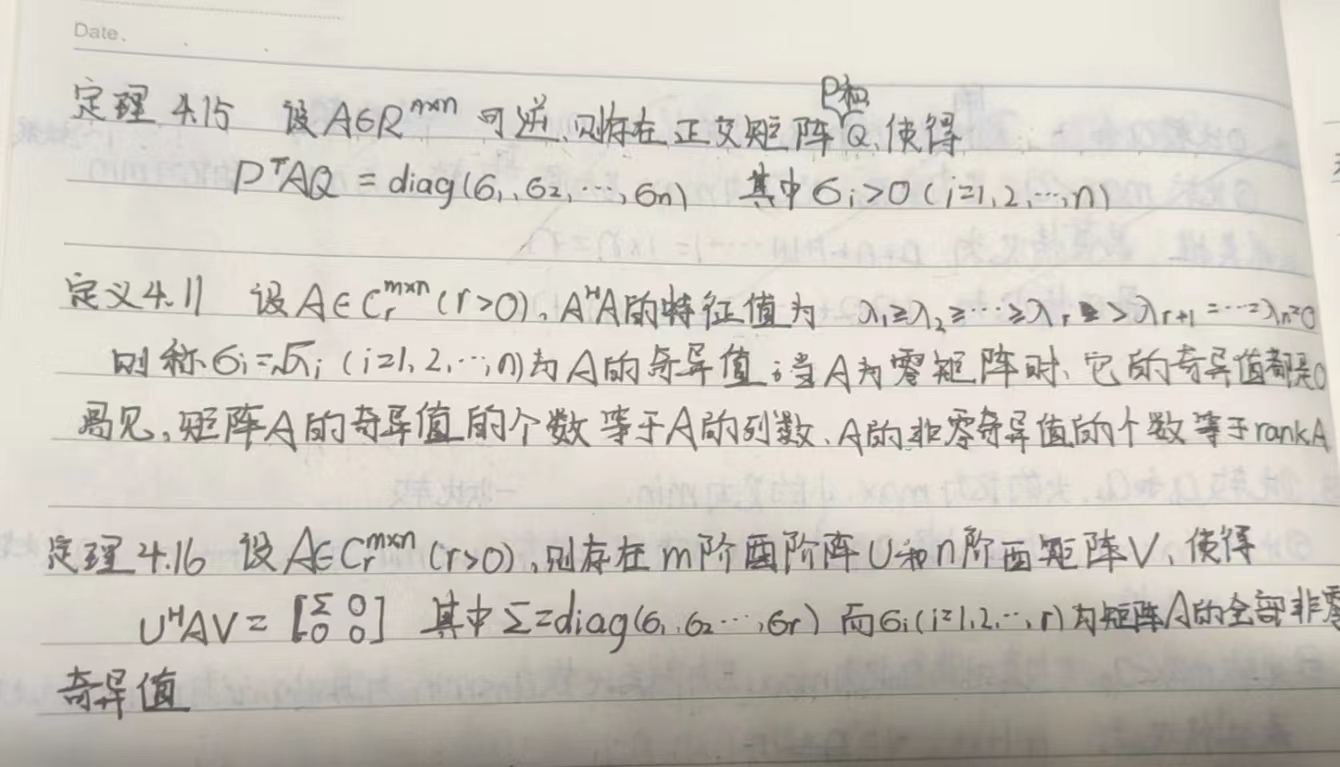 Date.
定理 4.15 设 A∈R^{n×n} 可逆,则存在正交矩阵P和Q,使得
P^TAQ = diag(σ₁,σ₂,⋯,σn) 其中σi>0(i=1,2,⋯,n)
定义4.11 设A∈C_r^{m×n}(r>0),A^HA的特征值为 λ₁≥λ₂≥⋯≥λr>λr+1=⋯=λn=0
则称σi=√λi (i=1,2,⋯,n)为A的奇异值;当A为零矩阵时、它的奇异值都是0
易见,矩阵A的奇异值的个数等于A的列数、A的非零奇异值的个数等于rankA
定理4.16 设A∈C_r^{m×n}(r>0),则存在m阶酉阶阵U和n阶酉矩阵V,使得
U^HAV= [Σ 0
0 0] 其中Σ=diag(σ₁,σ₂⋯,σr) 而σi(i=1,2,⋯,r)为矩阵A的全部非零
奇异值